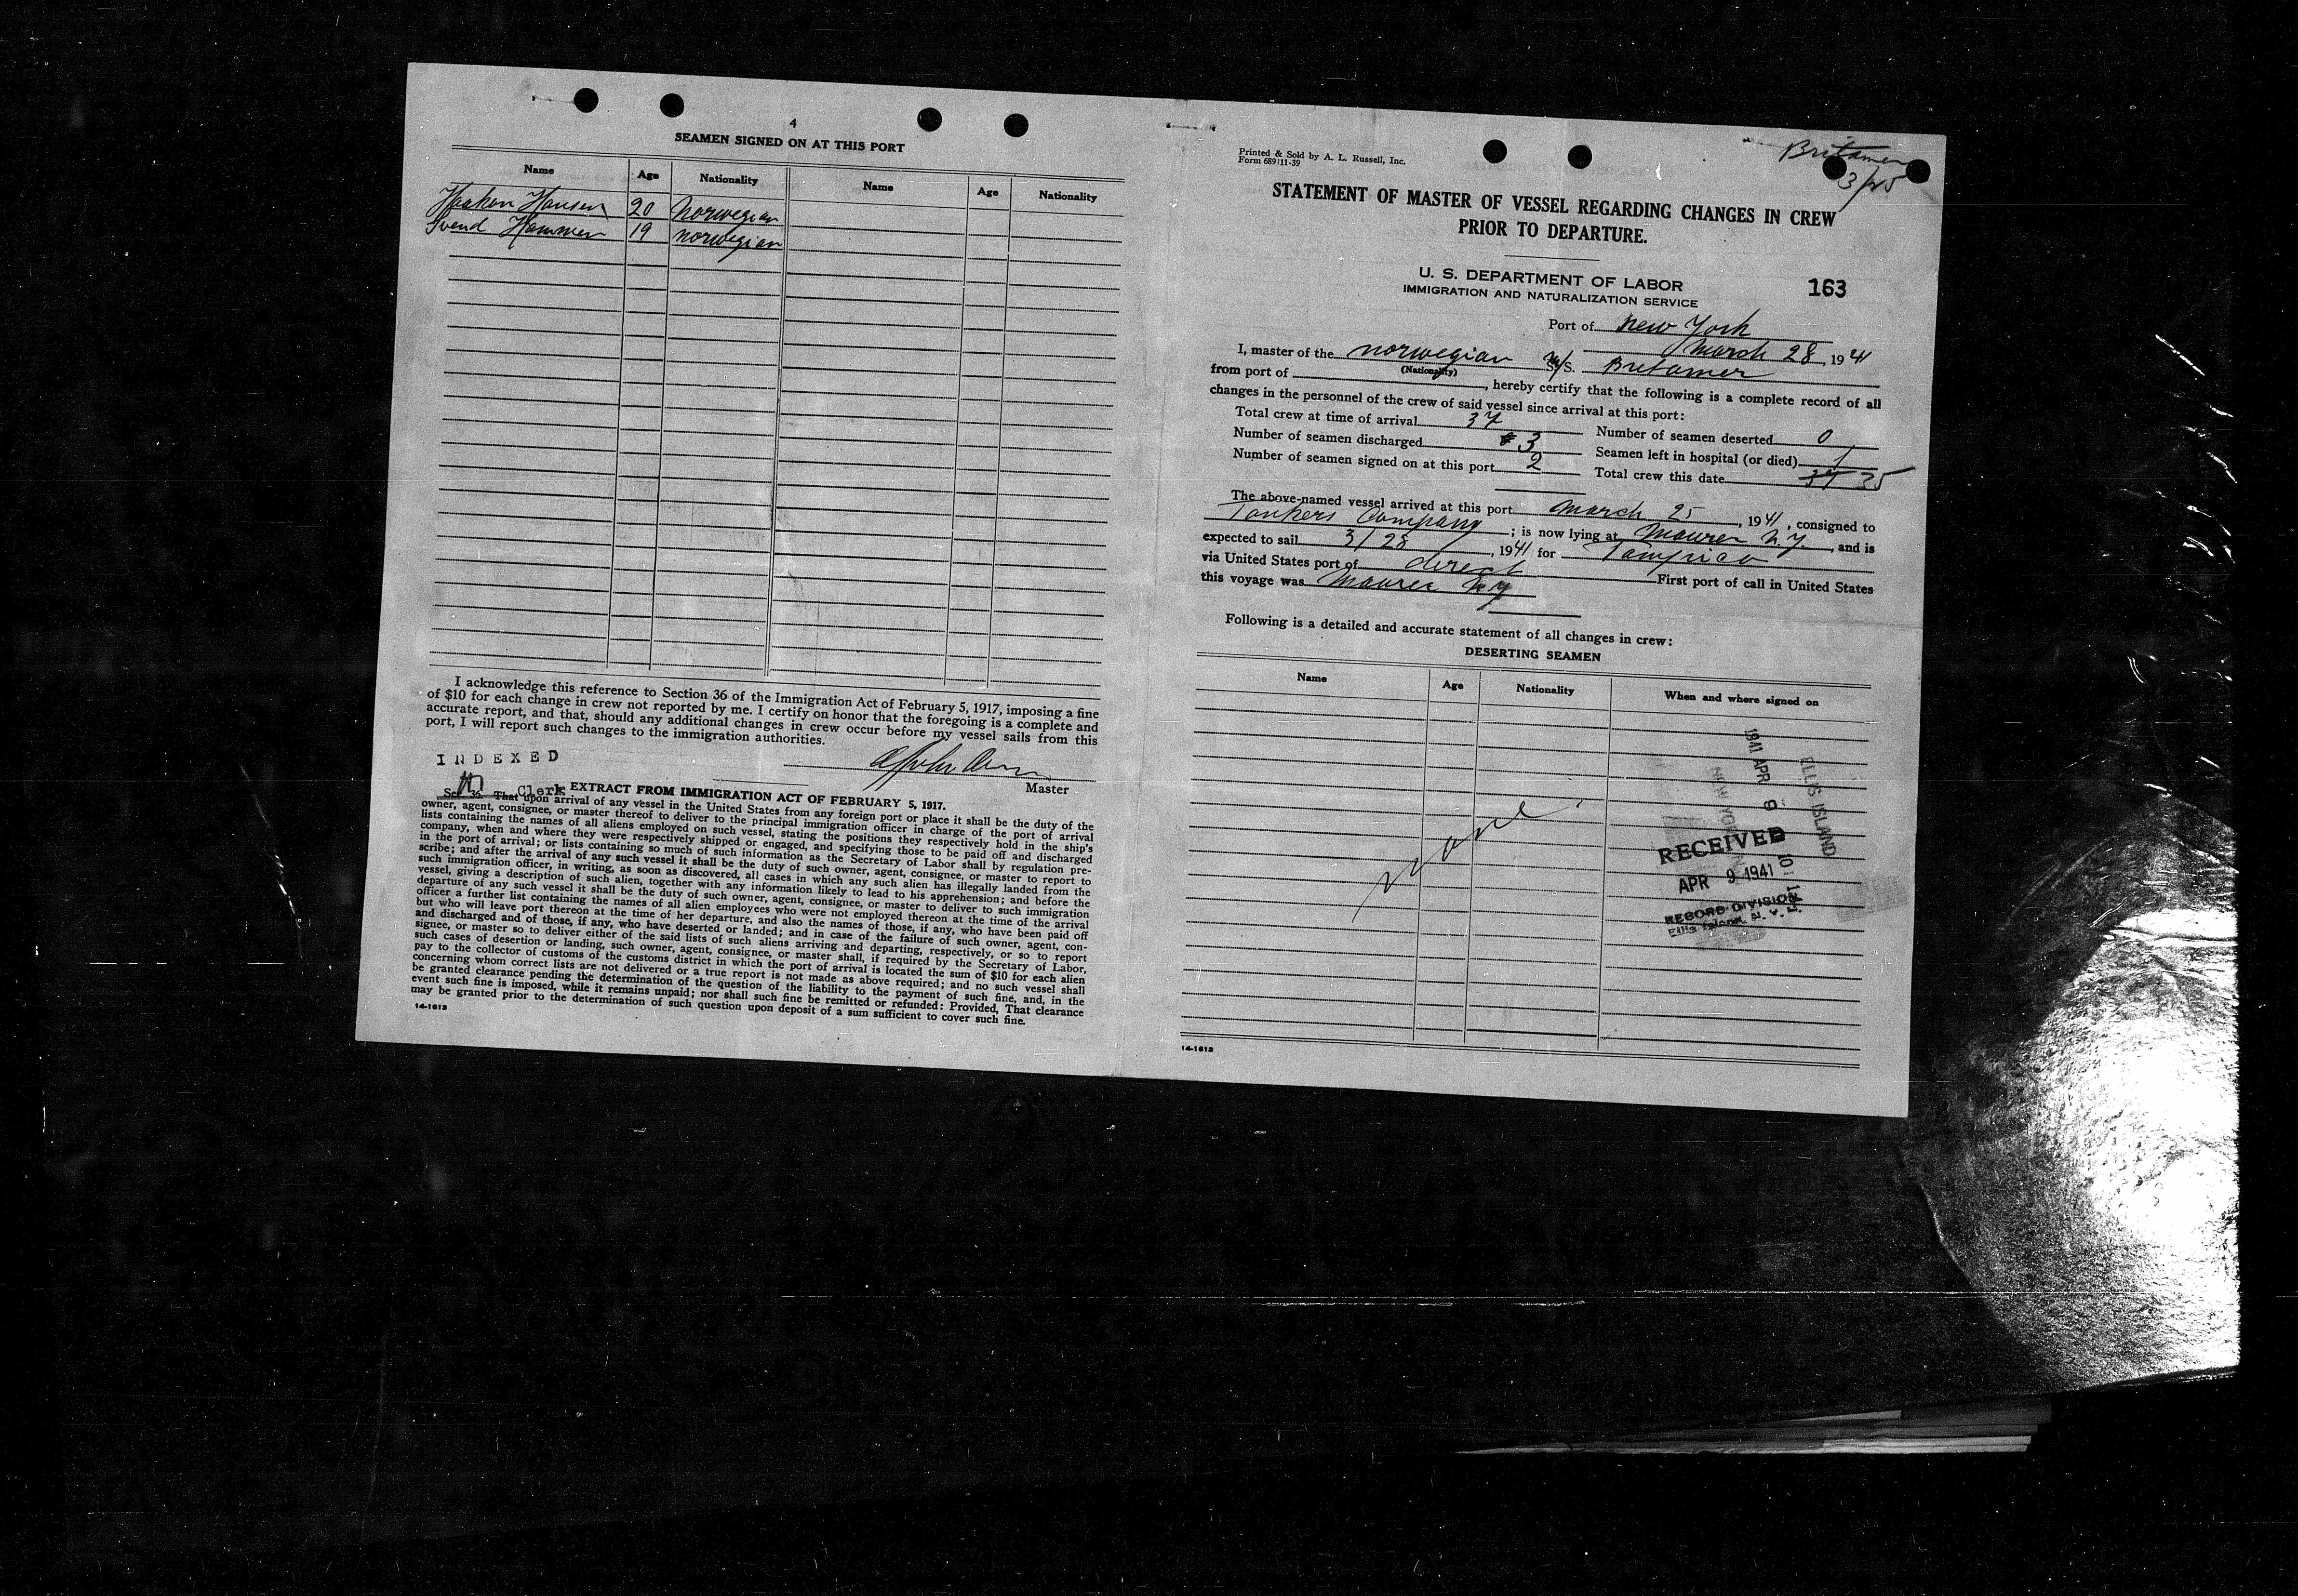 4
SEAMEN SIGNED ON AT THIS PORT
Name Age Nationality Name Age Nationality
Haakon Hansen 20 Norwegian
Svend Hammer 19 norwegian
I acknowledge this reference to Section 36 of the Immigration Act of February 5, 1917, imposing a fine
of $10 for each change in crew not reported by me. I certify on honor that the foregoing is a complete and
accurate report, and that, should any additional changes in crew occur before my vessel sails from this
port, I will report such changes to the immigration authorities.
INDEXED
Master
Clerk
EXTRACT FROM IMMIGRATION ACT OF FEBRUARY 5, 1917.
Sec. 36. That upon arrival of any vessel in the United States from any foreign port or place it shall be the duty of the
owner, agent, consignee, or master thereof to deliver to the principal immigration officer in charge of the port of arrival
lists containing the names of all aliens employed on such vessel, stating the positions they respectively hold in the ship's
company, when and where they were respectively shipped or engaged, and specifying those to be paid off and discharged
in the port of arrival; or lists containing so much of such information as the Secretary of Labor shall by regulation pre-
scribe; and after the arrival of any such vessel it shall be the duty of such owner, agent, consignee, or master to report to
such immigration officer, in writing, as soon as discovered, all cases in which any such alien has illegally landed from the
vessel, giving a description of such alien, together with any information likely to lead to his apprehension; and before the
departure of any such vessel it shall be the duty of such owner, agent, consignee, or master to deliver to such immigration
officer a further list containing the names of all alien employees who were not employed thereon at the time of the arrival
but who will leave port thereon at the time of her departure, and also the names of those, if any, who have been paid off
and discharged and of those, if any, who have deserted or landed; and in case of the failure of such owner, agent, con-
signee, or master so to deliver either of the said lists of such aliens arriving and departing, respectively, or so to report
such cases of desertion or landing, such owner, agent, consignee, or master shall, if required by the Secretary of Labor,
pay to the collector of customs of the customs district in which the port of arrival is located the sum of $10 for each alien
concerning whom correct lists are not delivered or a true report is not made as above required; and no such vessel shall
be granted clearance pending the determination of the question of the liability to the payment of such fine, and, in the
event such fine is imposed, while it remains unpaid; nor shall such fine be remitted or refunded: Provided, That clearance
may be granted prior to the determination of such question upon deposit of a sum sufficient to cover such fine.
14-1613
Britamer
3/25
Printed & Sold by A. L. Russell, Inc.
Form 689 11-39
STATEMENT OF MASTER OF VESSEL REGARDING CHANGES IN CREW
PRIOR TO DEPARTURE.
U. S. DEPARTMENT OF LABOR
IMMIGRATION AND NATURALIZATION SERVICE
163
Port of New York
March 28, 1941
I, master of the norwegian M/S. Britamer
(Nationality)
from port of , hereby certify that the following is a complete record of all
changes in the personnel of the crew of said vessel since arrival at this port:
Total crew at time of arrival 37
Number of seamen deserted 0
Number of seamen discharged 3
Seamen left in hospital (or died) 1
Number of seamen signed on at this port 2
Total crew this date 37 35
The above-named vessel arrived at this port March 25, 1941, consigned to
Tankers Company; is now lying at Maurer N.Y., and is
expected to sail 3/28, 1941 for Tampico
via United States port of direct First port of call in United States
this voyage was Maurer N.Y
Following is a detailed and accurate statement of all changes in crew:
DESERTING SEAMEN
Name Age Nationality When and where signed on
None
1941 APR 9 10:
ELLIS ISLAND
NEW YORK
RECEIVED
APR 9 1941
RECORD DIVISION
Ellis Island, N. Y.
14-1613